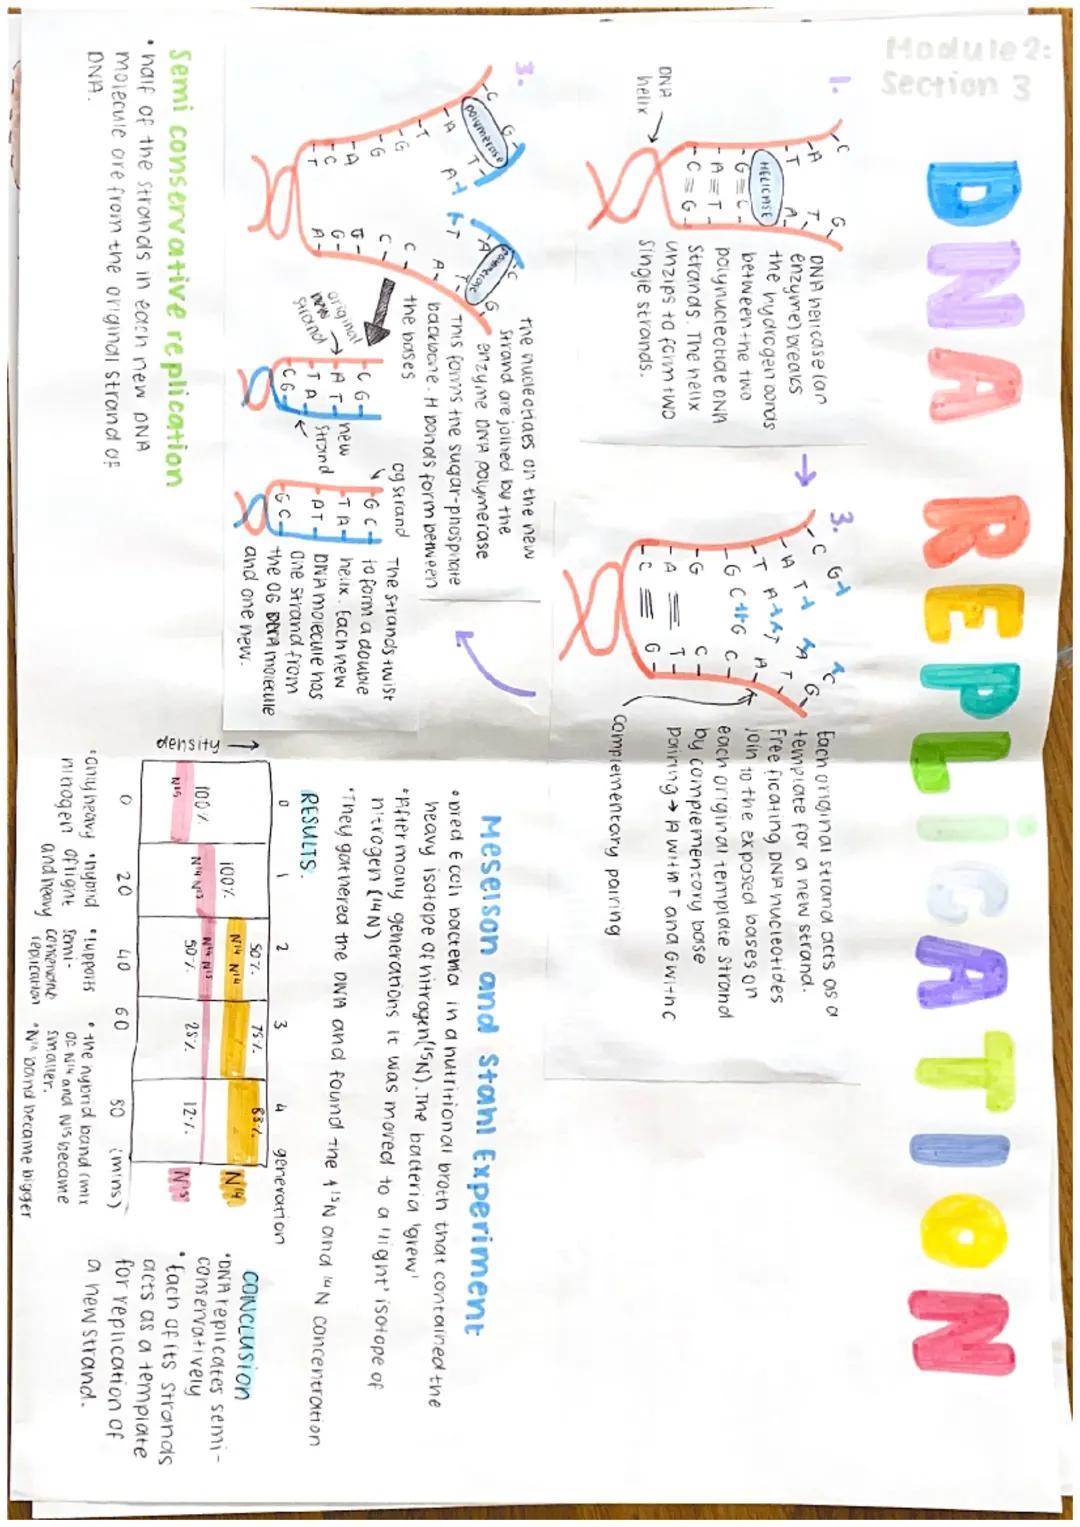 Module 2:
Section 3
DNA REPLiCATION
1.
DNA
helix
HELICASE
C
A
T
G≡C
A≡T
C≡G
G
T
A
DNA helicase (an
enzyme) breaks
the hydrogen bonds
between the two
polynucleotide DNA
strands. The helix
unzips to form two
single strands.
3.
C G
A T
T A T A
G C G C
G C
A T
C G
A C
T G
Each original strand acts as a
template for a new strand.
Free floating DNA nucleotides
join to the exposed bases on
each original template strand
by complementary base
pairing → A with T and G with C
complementary pairing
3.
polymerase
polymerase
The nucleotides on the new
strand are joined by the
enzyme DNA polymerase
This forms the sugar-phosphate
backbone. H bonds form between
the bases
original
new
strand
new
strand
C G
A T
T A
C G
og strand
G C
T A
A T
G C
The strands twist
to form a double
helix. Each new
DNA molecule has
one strand from
the OG DNA molecule
and one new.
Semi conservative replication
• half of the strands in each new DNA
molecule are from the original strand of
DNA.
Meselson and Stahl Experiment
• bred E coli bacteria in a nutritional broth that contained the
heavy isotope of nitrogen (15N). The bacteria 'grew'
• After many generations it was moved to a 'light' isotope of
nitrogen (14N)
• They gathered the DNA and found the 15N and 14N concentration
RESULTS.
0 1 2 3 4 generation
density →
100%
N15
100%
N14 N15
50%
N14 N14
N14 N15
50%
75%
25%
88%
12%
N14
N15
0 20 40 60 80 (mins)
• only heavy
nitrogen
• hybrid
of light
and heavy
• supports
semi-
conservative
replication
• the hybrid band (mix
of N14 and N15 became
smaller.
• N14 band became bigger
CONCLUSION
• DNA replicates semi-
conservatively
• Each of its strands
acts as a template
for replication of
a new strand.